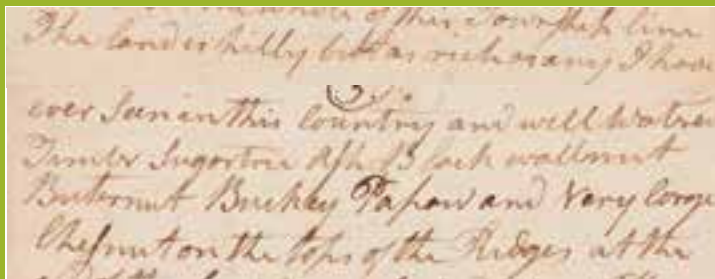 of this Township line
The land is hilly but as rich as any I have
ever Seen in this Country and well Watered
Timber Sugartree Ash Black wallnut
Buternut Buckey Papaw and Very large
Chesnut on the tops of the Ridges at the